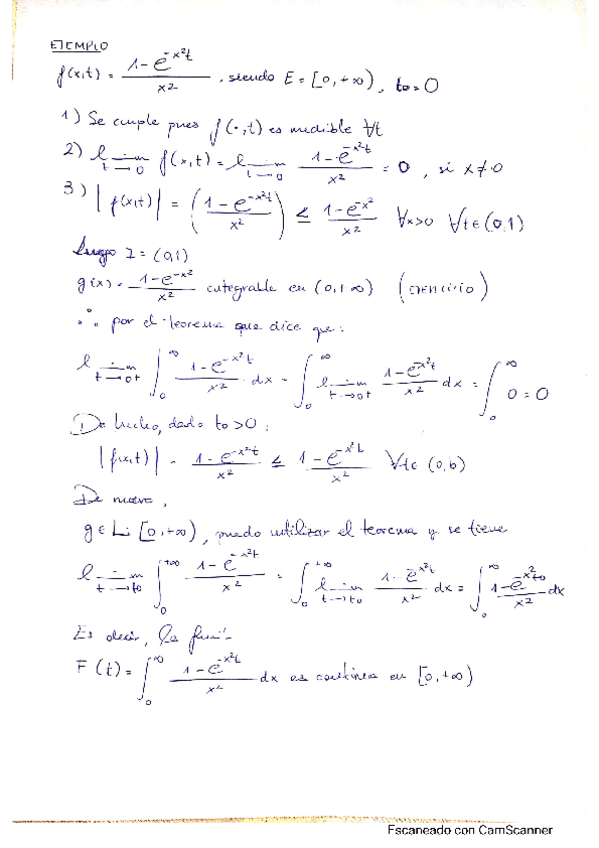 EJEMPLO
f(x,t) = (1-e^{-x²t})/x² , siendo E = [0,+∞), t₀ = 0
1) Se cumple pues f(·,t) es medible ∀t
2) lim_{t→0} f(x,t) = lim_{t→0} (1-e^{-x²t})/x² = 0 , si x≠0
3) |f(x,t)| = ((1-e^{-x²t})/x²) ≤ (1-e^{-x²})/x² ∀x>0 ∀t∈(0,1)
luego I = (0,1)
g(x) = (1-e^{-x²})/x² integrable en (0,+∞) (EJERCICIO)
∴ por el teorema que dice que:
lim_{t→0+} ∫_0^∞ (1-e^{-x²t})/x² dx = ∫_0^∞ lim_{t→0+} (1-e^{-x²t})/x² dx = ∫_0^∞ 0 = 0
De hecho, dado t₀>0:
|f(x,t)| = (1-e^{-x²t})/x² ≤ (1-e^{-x²b})/x² ∀t∈(0,b)
De nuevo,
g∈L₁[0,+∞), puedo utilizar el teorema y se tiene
lim_{t→t₀} ∫_0^{+∞} (1-e^{-x²t})/x² = ∫_0^{+∞} lim_{t→t₀} (1-e^{-x²t})/x² dx = ∫_0^∞ (1-e^{-x²t₀})/x² dx
Es decir, la
F(t) = ∫_0^∞ (1-e^{-x²t})/x² dx es continua en [0,+∞)
Escaneado con CamScanner